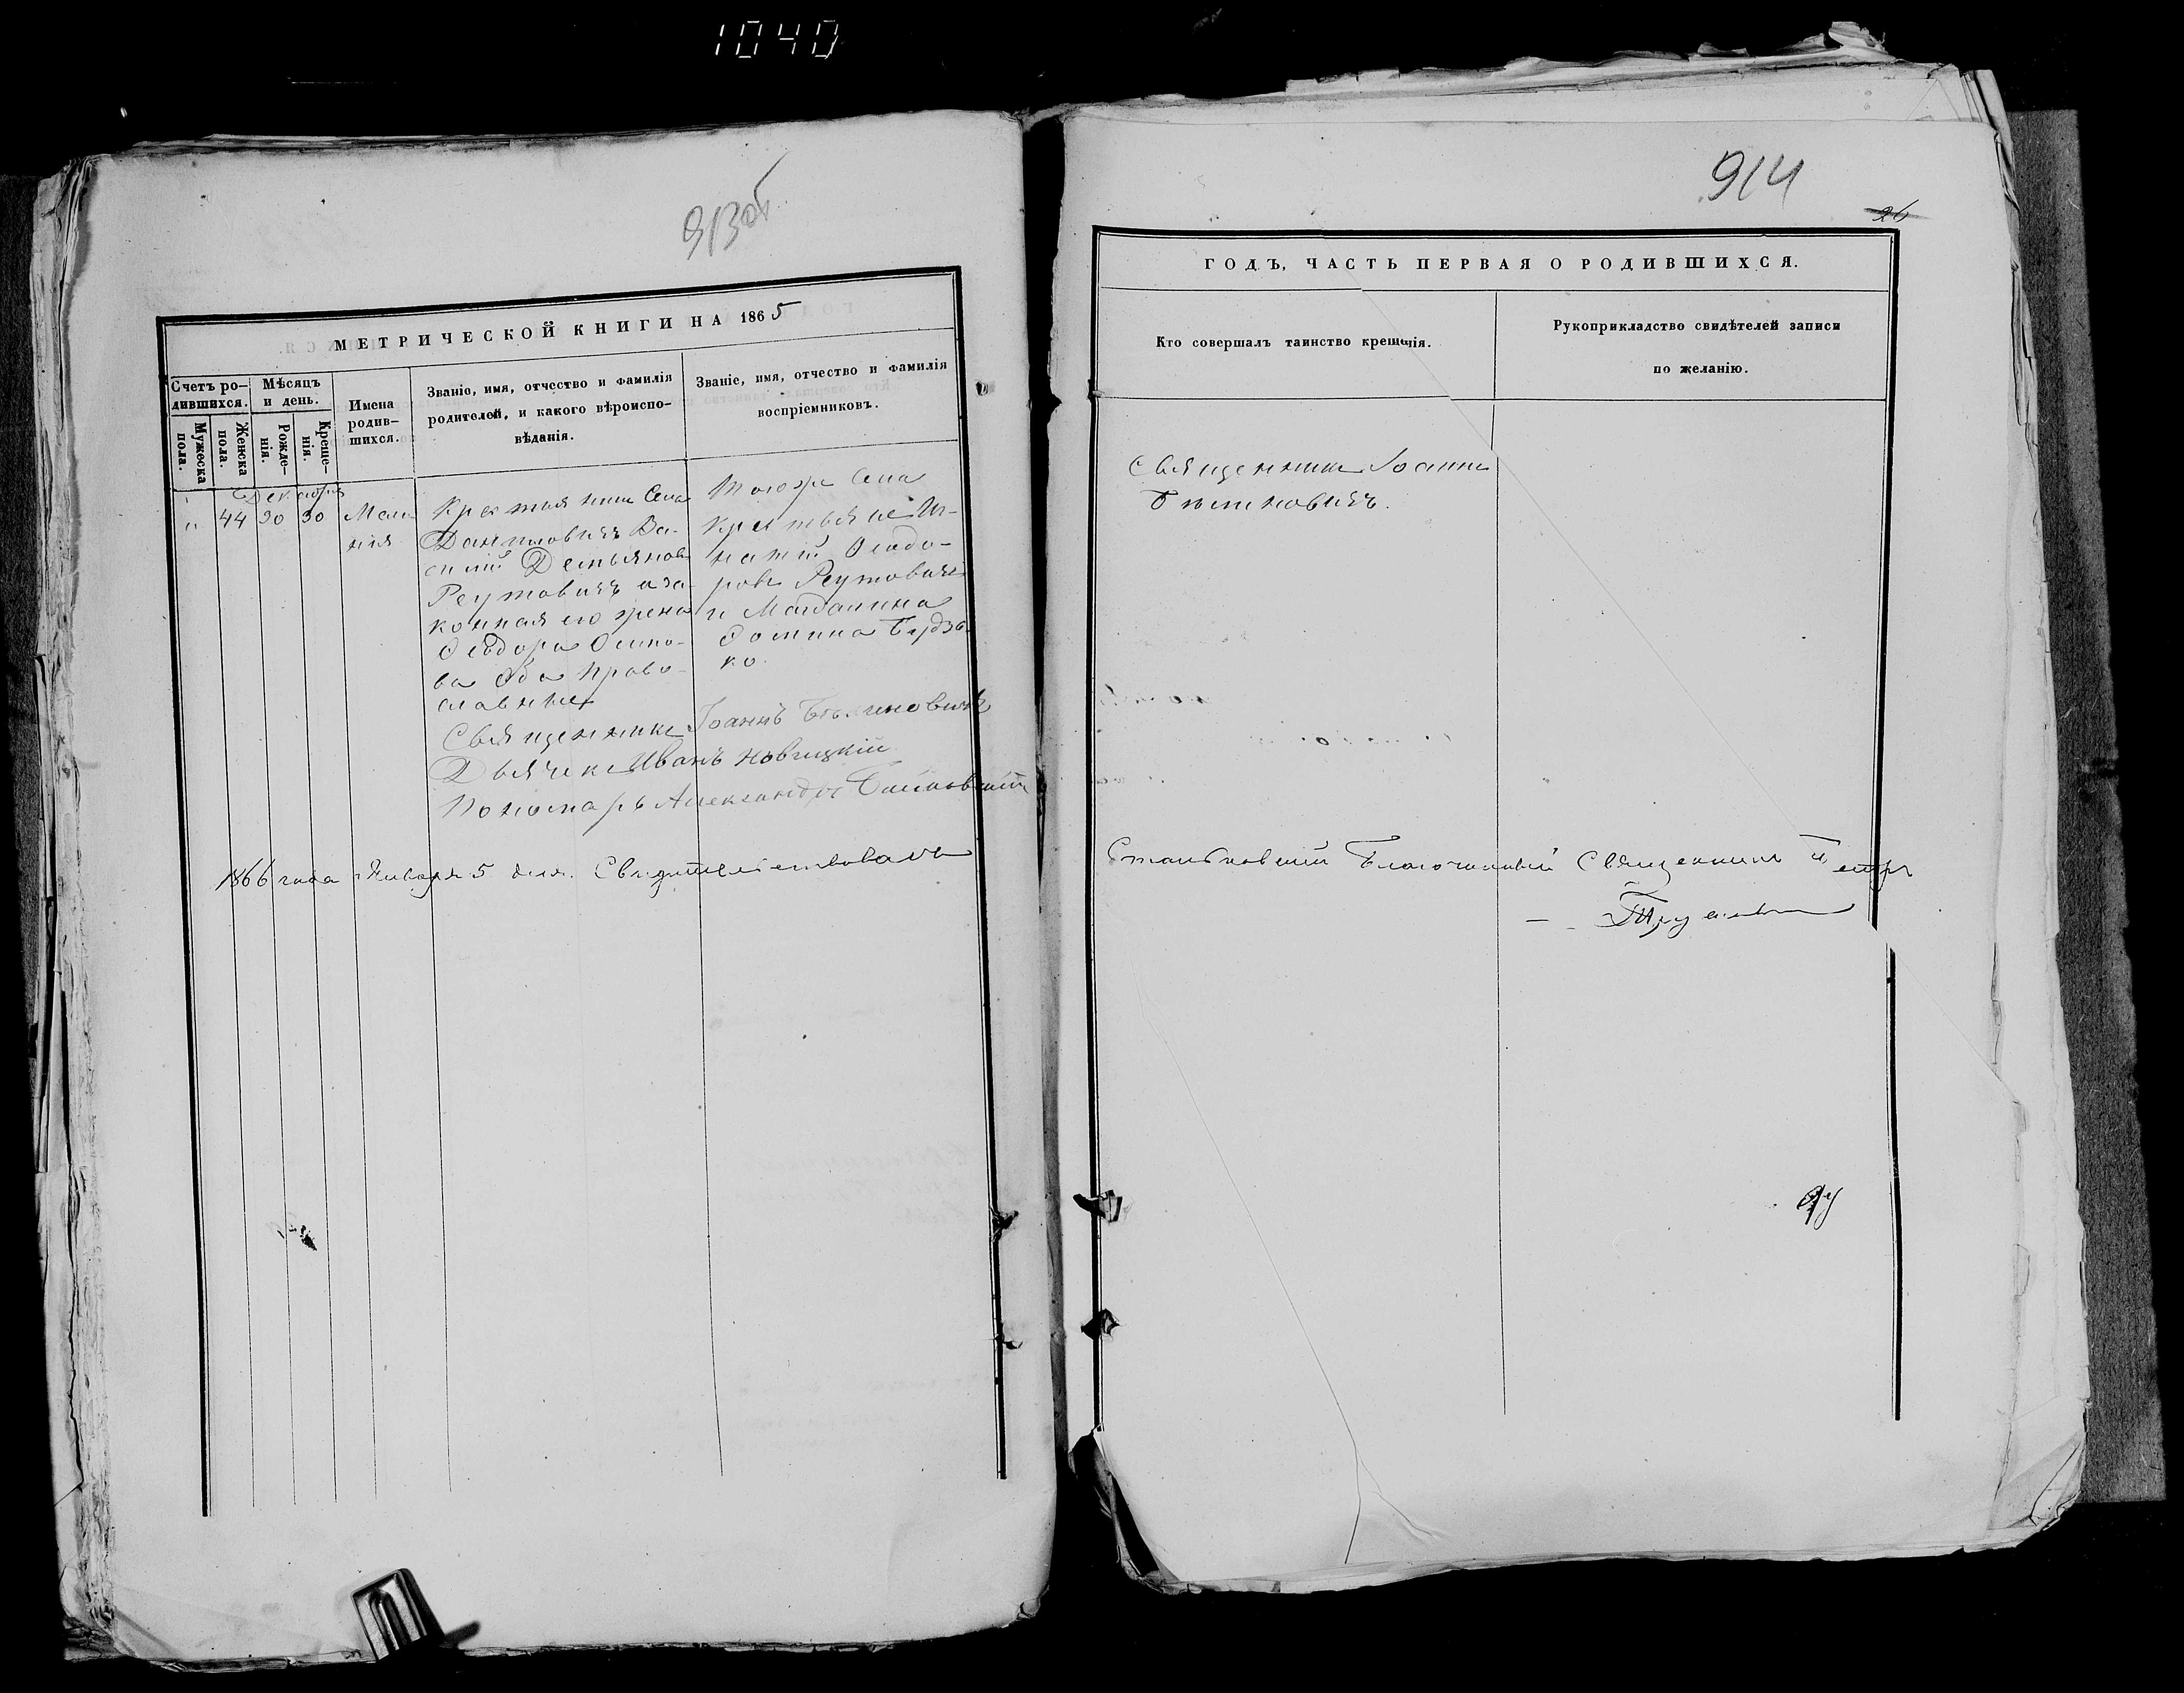 1040
913об
МЕТРИЧЕСКОЙ КНИГИ НА 1865
Счетъ ро-
дившихся.
Мѣсяцъ
и день.
Мужеска
пола.
Женска
пола.
Рожде-
нія.
Креще-
нія.
Имена
родив-
шихся.
Званіе, имя, отчество и фамилія
родителей, и какого вѣроиспо-
вѣданія.
Званіе, имя, отчество и фамилія
воспріемниковъ.
Декабрь
" 44 30 30
Мела
нія
Крестьянинъ Села
Даниловичъ Ва-
силій Демьяновъ
Реутовичъ и за-
конная его жена
Ѳеодора Осипо-
ва оба право-
славные
Тогоже Села
Крестьяне Иг-
натій Ѳеодо-
ровъ Реутовичъ
и Магдалина
ко.
Священникъ Іоаннъ
Дьячекъ Иванъ Новицкій
Пономарь Александръ
1866 года Января 5 дня. Свидѣтельствовалъ
914
26
ГОДЪ, ЧАСТЬ ПЕРВАЯ О РОДИВШИХСЯ.
Кто совершалъ таинство крещенія.
Рукоприкладство свидѣтелей записи
по желанію.
Священникъ Іоаннъ
Станьковскій Благочинный Священникъ Петръ